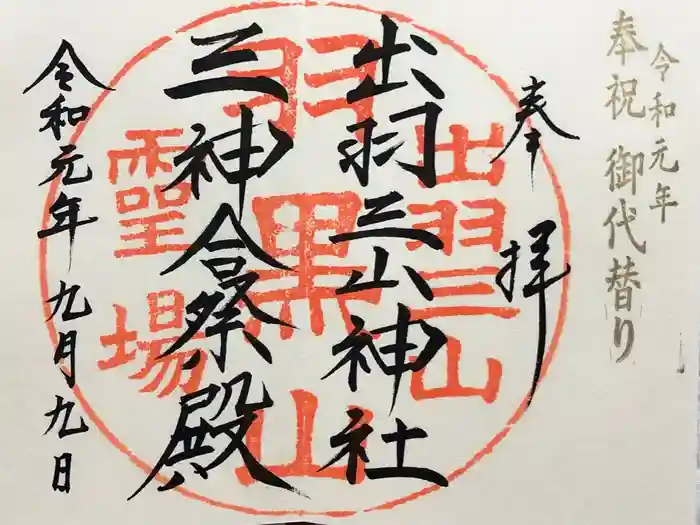 令和元年
奉祝 御代替り
奉拝
出羽三山神社
三神合祭殿
令和元年九月九日
出羽三山
羽黒山
霊場